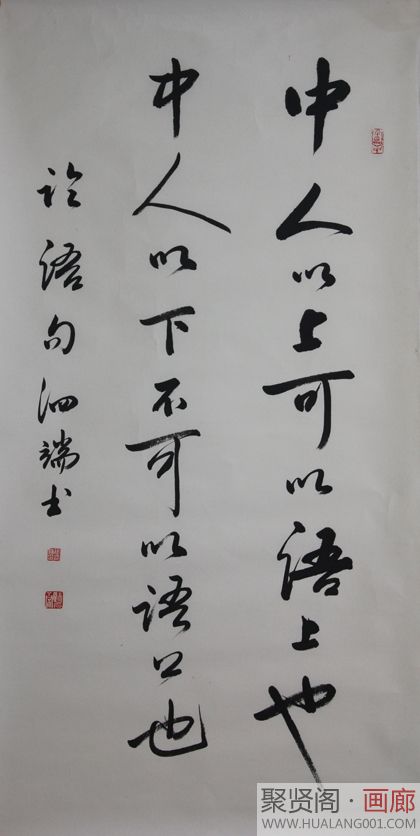 中人以上可以语上也
中人以下不可以语上也
论语句泗端书
聚贤阁·画廊
WWW.HUALANG001.COM